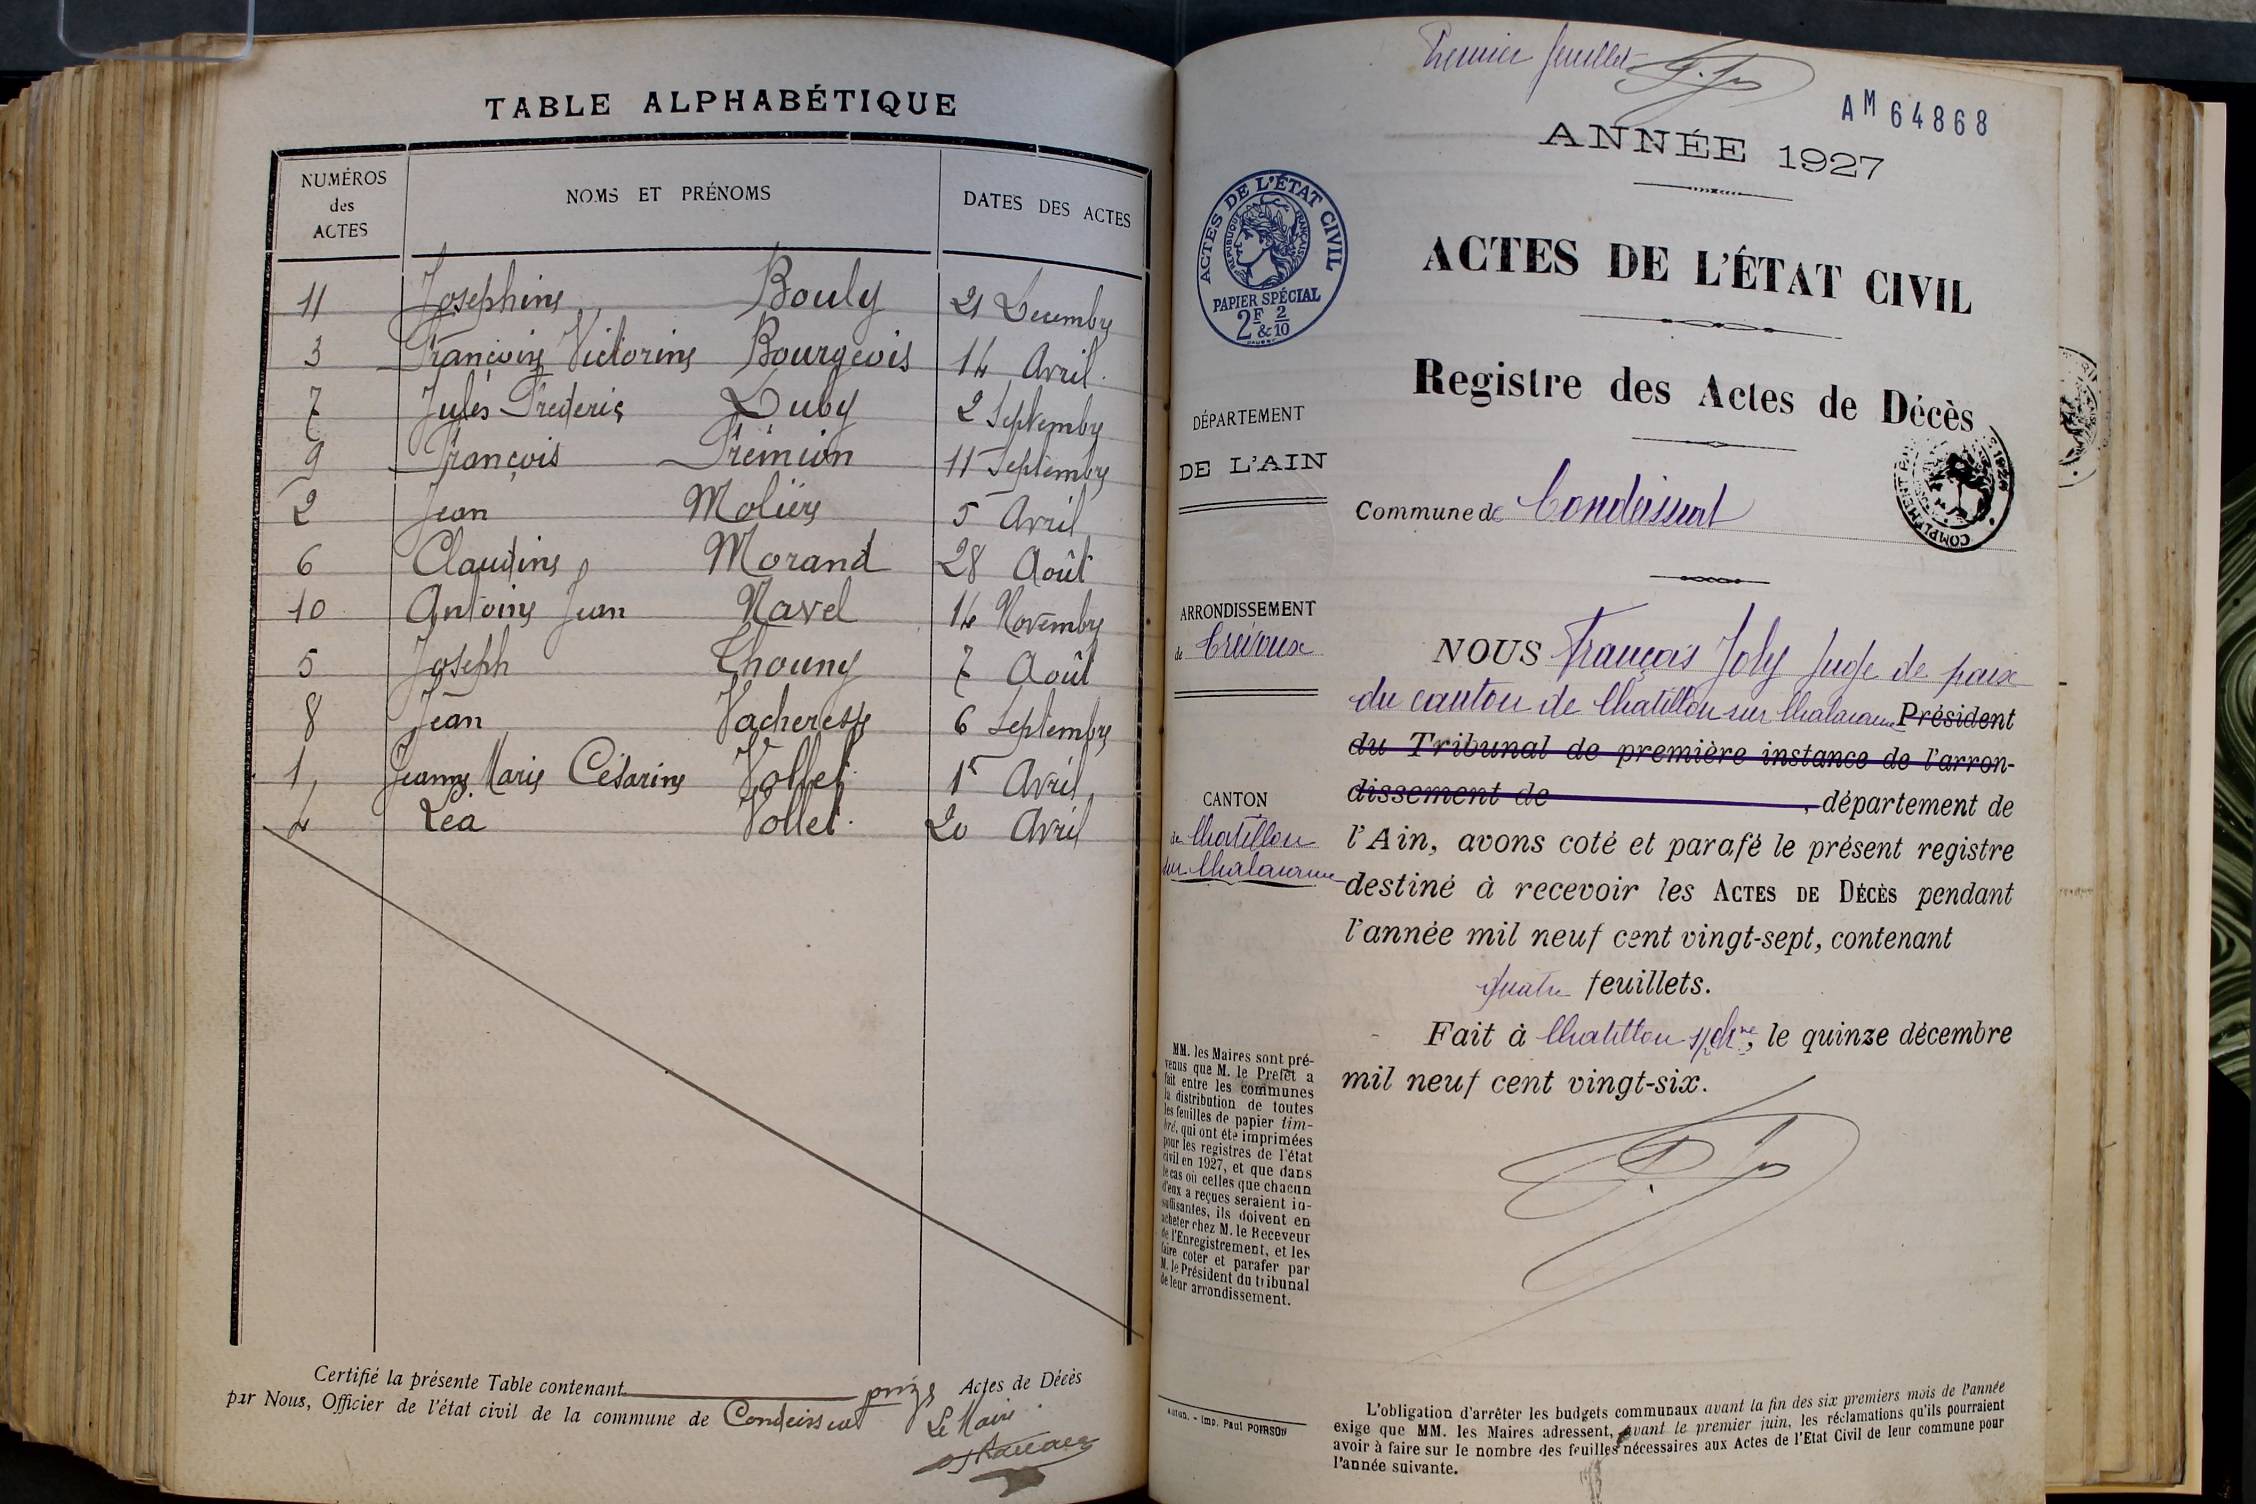 TABLE ALPHABÉTIQUE
NUMÉROS des ACTES | NOMS ET PRÉNOMS | DATES DES ACTES
11 Josephine Bouly 21 Decembre
3 Françoise Victorine Bourgeois 14 Avril
7 Jules Frederic Duby 2 Septembre
9 François Frémion 11 Septembre
2 Jean Molière 5 Avril
6 Claudine Morand 28 Août
10 Antoine Jean Navel 14 Novembre
5 Joseph Thouny 7 Août
8 Jean Vacheresse 6 Septembre
1 Jeanne Marie Césarine Vollet 1r Avril
4 Léa Vollet 20 Avril
Certifié la présente Table contenant onze Actes de Décès
par Nous, Officier de l'état civil de la commune de Condeissiat
Le Maire
Premier feuillet
AM 64868
ANNÉE 1927
ACTES DE L'ÉTAT CIVIL
RÉPUBLIQUE FRANÇAISE
PAPIER SPÉCIAL
2F & 2/10
ACTES DE L'ÉTAT CIVIL
Registre des Actes de Décès
DÉPARTEMENT
DE L'AIN
Commune de Condeissiat
ARRONDISSEMENT
de Trévoux
CANTON
de Chatillon
sur Chalaronne
NOUS François Joly Juge de paix
du canton de Chatillon sur Chalaronne Président
du Tribunal de première instance de l'arron-
dissement de , département de
l'Ain, avons coté et parafé le présent registre
destiné à recevoir les ACTES DE DÉCÈS pendant
l'année mil neuf cent vingt-sept, contenant
quatre feuillets.
Fait à Chatillon s/Chne, le quinze décembre
mil neuf cent vingt-six.
MM. les Maires sont pré-
venus que M. le Préfet a
fait entre les communes
la distribution de toutes
les feuilles de papier tim-
bré, qui ont été imprimées
pour les registres de l'état
civil en 1927, et que dans
le cas où celles que chacun
d'eux a reçues seraient in-
suffisantes, ils doivent en
acheter chez M. le Receveur
de l'Enregistrement, et les
faire coter et parafer par
M. le Président du tribunal
de leur arrondissement.
Autun. - Imp. Paul POIRSON
L'obligation d'arrêter les budgets communaux avant la fin des six premiers mois de l'année
exige que MM. les Maires adressent, avant le premier juin, les réclamations qu'ils pourraient
avoir à faire sur le nombre des feuilles nécessaires aux Actes de l'Etat Civil de leur commune pour
l'année suivante.